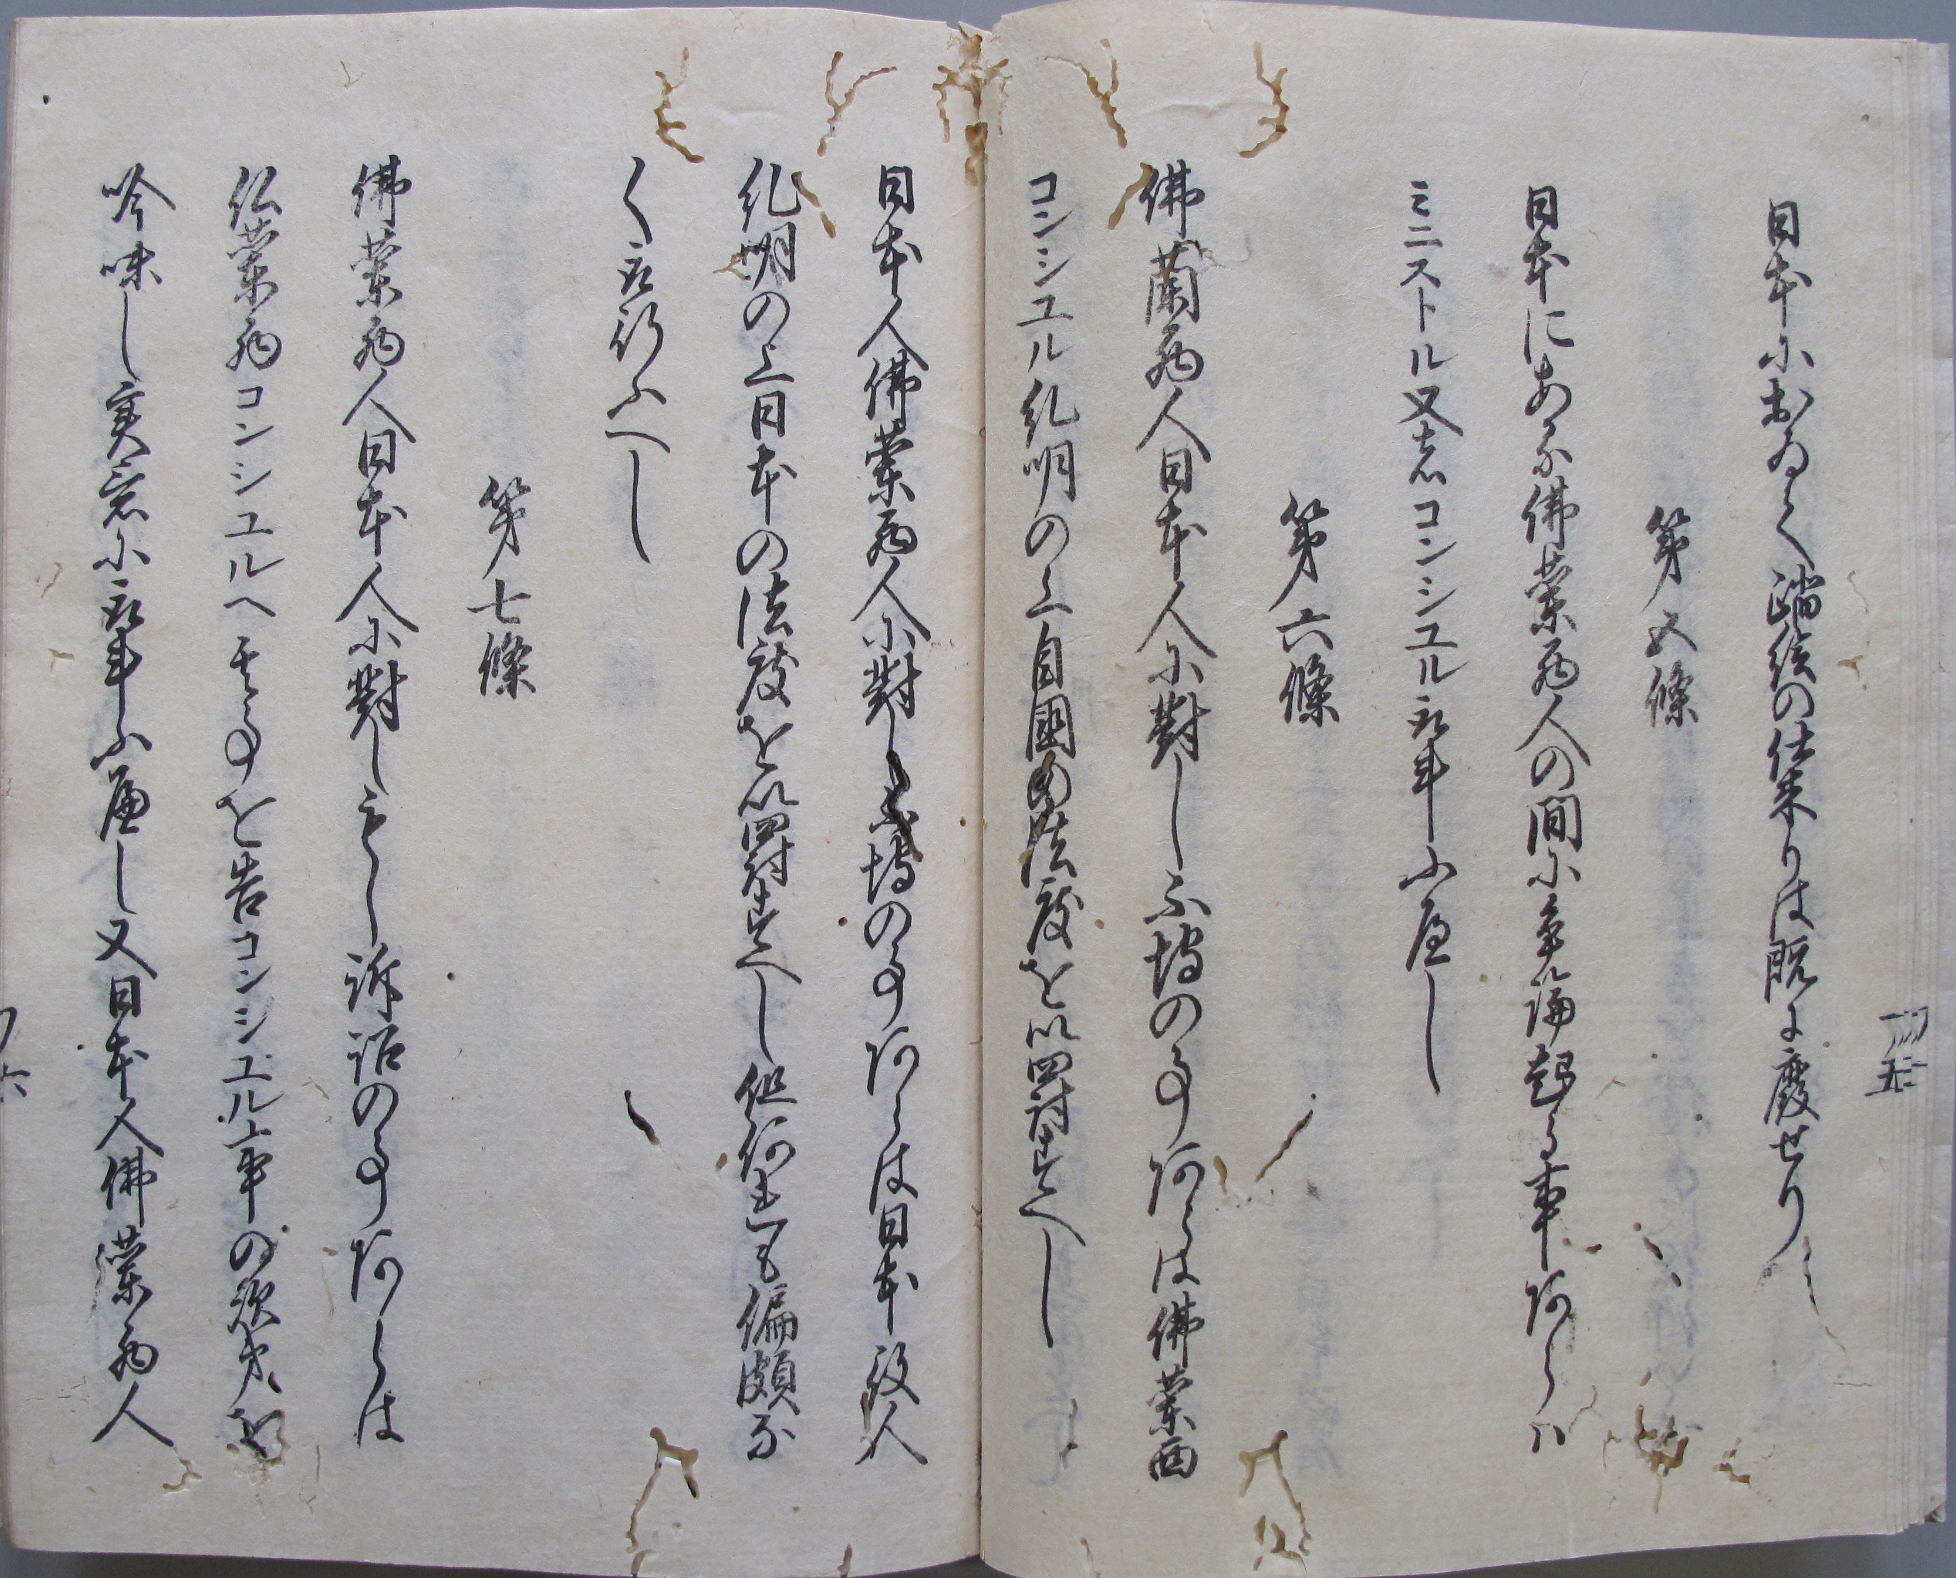 日本小おゐて踏絵の仕来りは既に廃せり
第五條
日本にある佛蘭西人の間小争論起る事阿らハ
ミニストル又ハコンシユル取斗ふ屁し
第六條
佛蘭西人日本人小對し不埒の事阿らは佛蘭西
コンシユル糺明の上自國の法度を以罰すへし
日本人佛蘭西人小對し不埒の事阿らは日本役人
糺明の上日本の法度を以罰すへし但何連も偏頗な
く取行ふへし
第七條
佛蘭西人日本人小對しもし訴訟の事阿らは
仏蘭西コンシユルへ其事を告コンシユル事の次第を
吟味し実意小取斗ふ屁し又日本人佛蘭西人
五
六